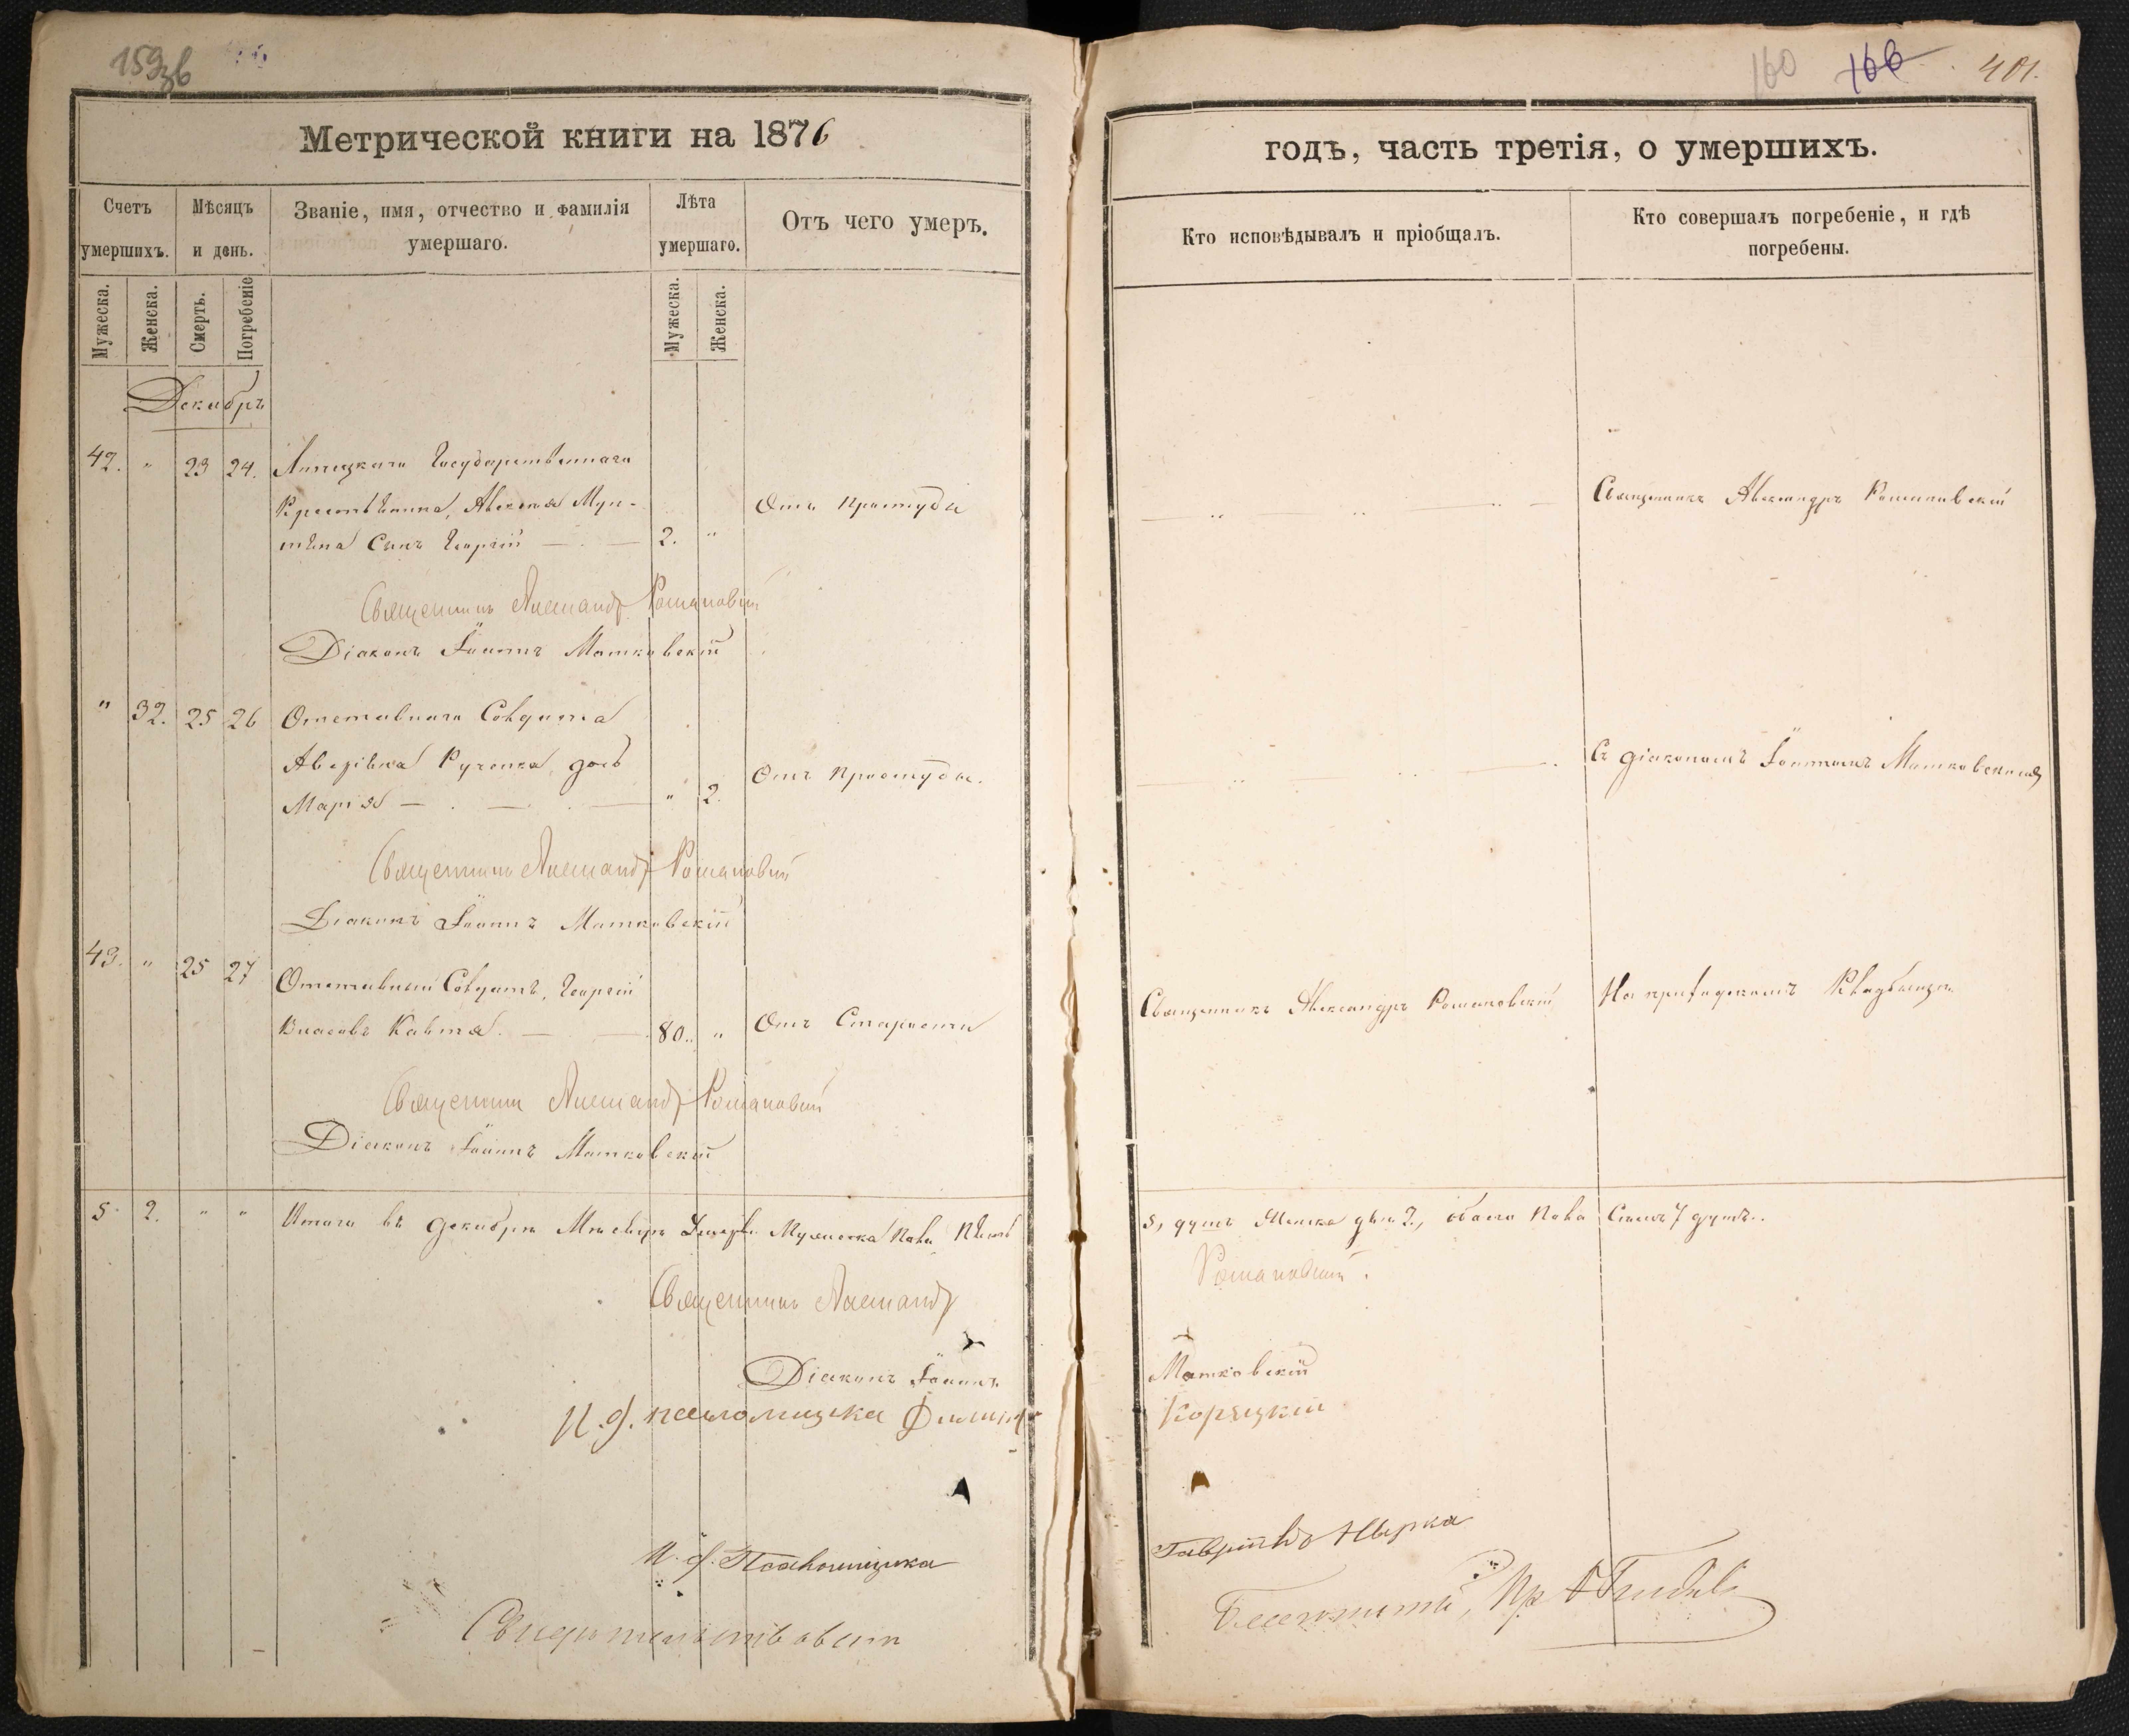 159зв
160 166 401.
Метрической книги на 1876
годъ, часть третія, о умершихъ.
Счетъ умершихъ.
Мѣсяцъ и день.
Званіе, имя, отчество и фамилія умершаго.
Лѣта умершаго.
Отъ чего умеръ.
Кто исповѣдывалъ и пріобщалъ.
Кто совершалъ погребеніе, и гдѣ погребены.
Мужеска. Женска. Смерть. Погребеніе Мужеска. Женска.
Декабрь
42. " 23 24. Липецкаго Государственнаго
Крестьянина, Алексея Мун-
тяна Сынъ Георгій 2. " Отъ простуды
Священникъ Александръ Романовскій
Священникъ Александръ Романовскій
Діаконъ Іоаннъ Матковскій
" 32. 25 26 Отставнаго Солдата
дочь
Марія " 2. Отъ простуды.
Съ діакономъ Іоанномъ Матковскимъ
Священникъ Александръ Романовскій
Діаконъ Іоаннъ Матковскій
43. " 25 27 Отставный Солдатъ, Георгій
Власовъ 80. " Отъ Старости
Священникъ Александръ Романовскій
На приходскомъ Кладбищѣ
Священникъ Александръ Романовскій
Діаконъ Іоаннъ Матковскій
5. 2. " " Итого въ декабрѣ Мѣсяцѣ Умерло Мужеска Пола Пять
5, душъ Женска двѣ 2., обоего Пола Семь 7 душъ.
Священникъ Александръ
Романовскій.
Діаконъ Іоаннъ
Матковскій
И. д. псаломщика Филиппъ
Корецкій
И. д. Псаломщика
Гавріилъ
Свидетельствовалъ
Благочинный, Пр.